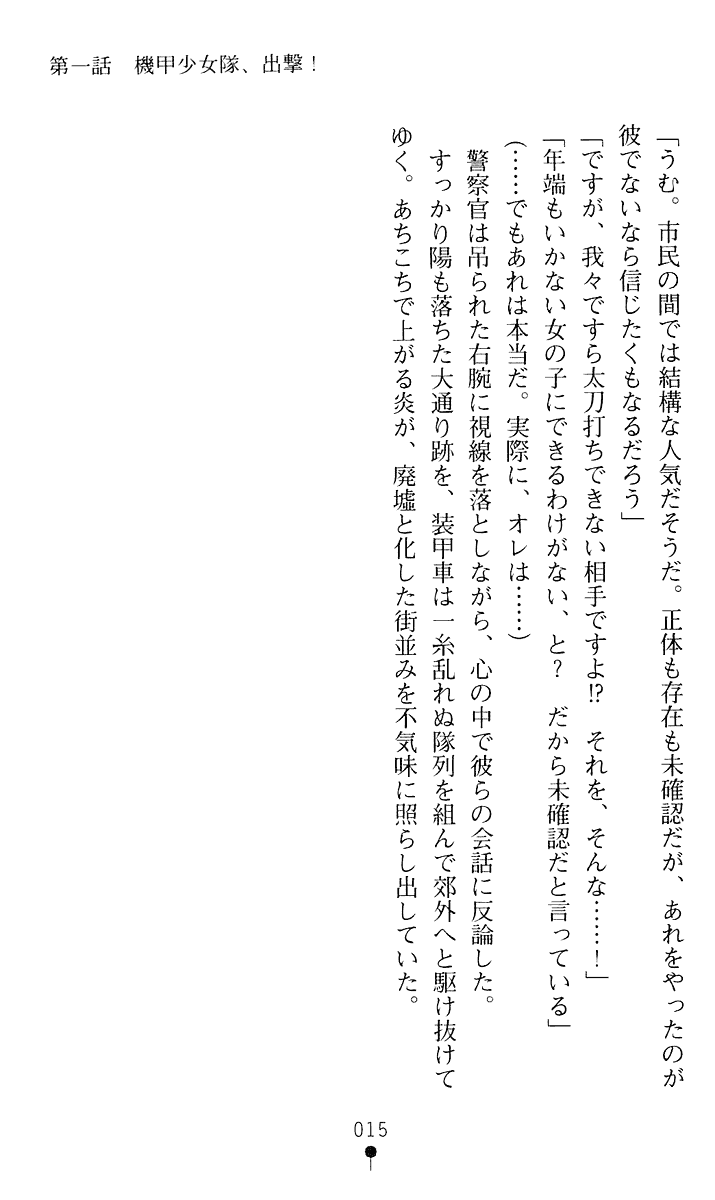 第一話　機甲少女隊、出撃！
「うむ。市民の間では結構な人気だそうだ。正体も存在も未確認だが、あれをやったのが
彼でないなら信じたくもなるだろう」
「ですが、我々ですら太刀打ちできない相手ですよ!?　それを、そんな……！」
「年端もいかない女の子にできるわけがない、と？　だから未確認だと言っている」
（……でもあれは本当だ。実際に、オレは……）
　警察官は吊られた右腕に視線を落としながら、心の中で彼らの会話に反論した。
　すっかり陽も落ちた大通り跡を、装甲車は一糸乱れぬ隊列を組んで郊外へと駆け抜けて
ゆく。あちこちで上がる炎が、廃墟と化した街並みを不気味に照らし出していた。
015